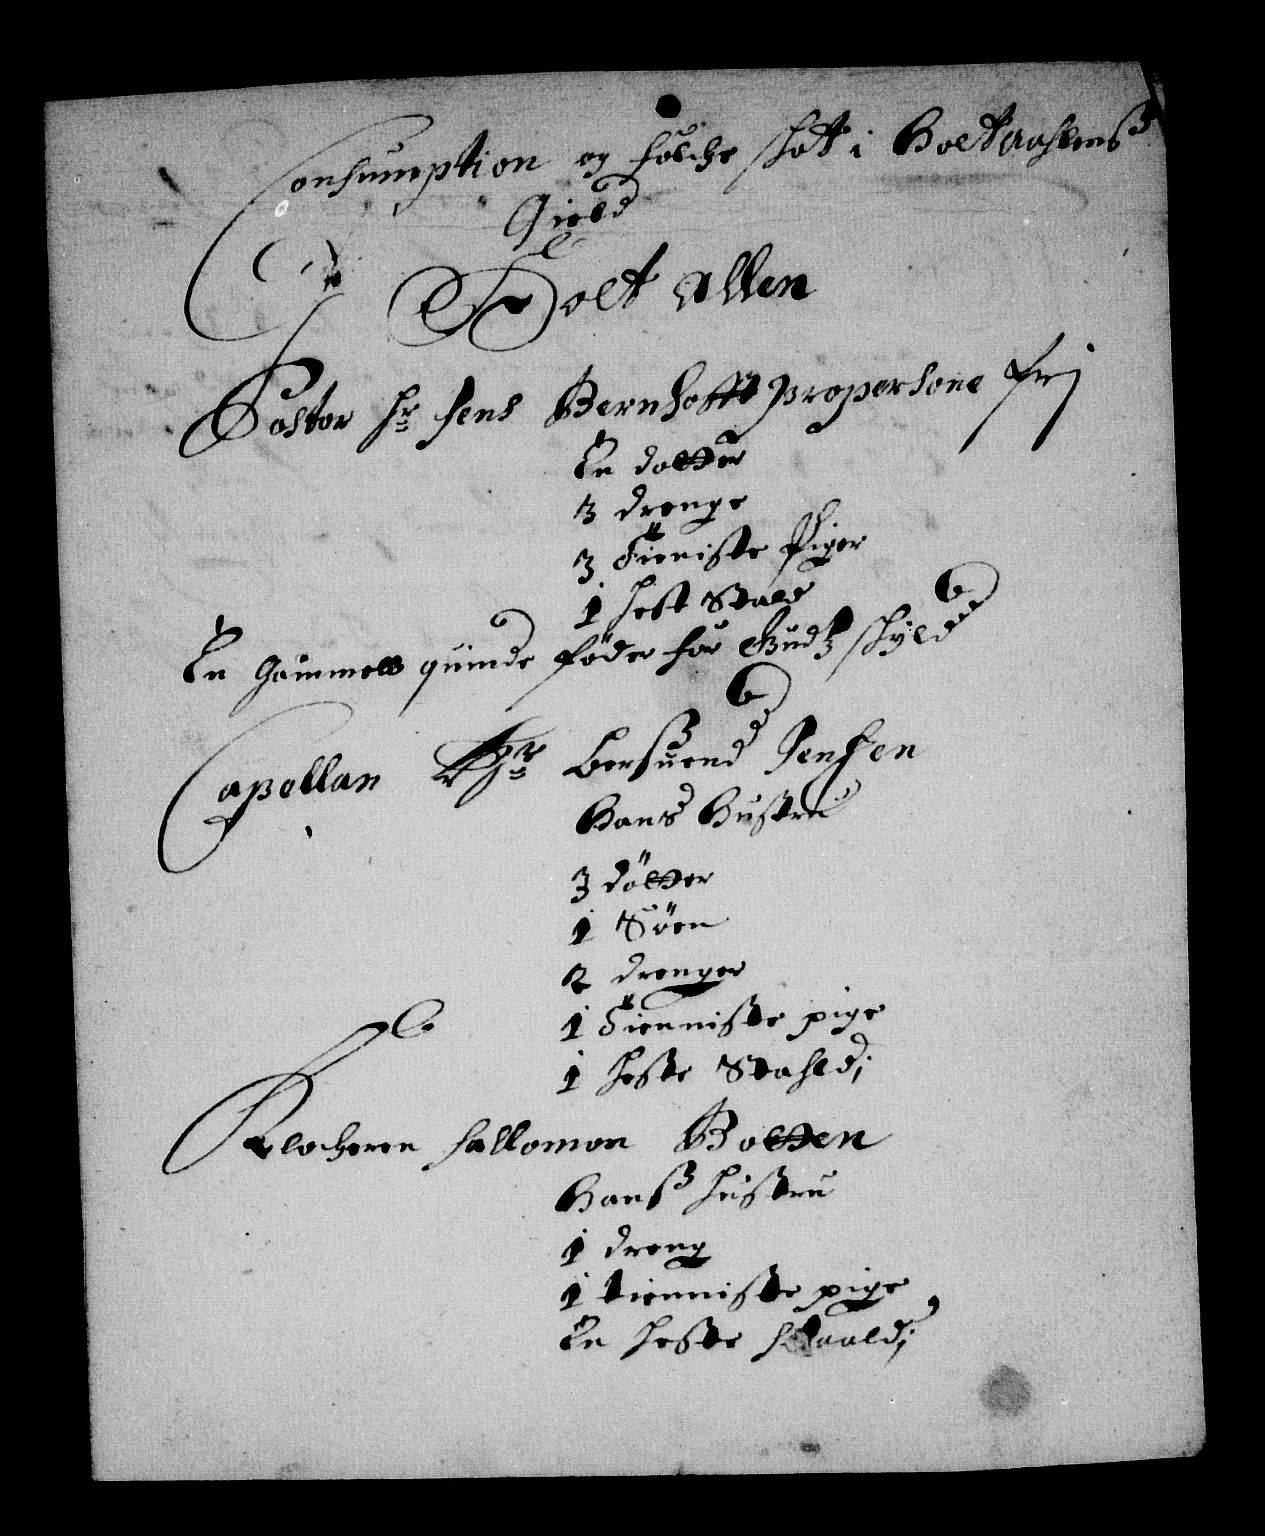 Consumption og folche skatt i Holtaahlens
Gield
Holt Allen
Pastor Hr Jens Bernhofft propersone frj
En dotter
3 drenge
3 Tieniste Piger
1 hest Stald
En Gammell quinde føder for Gudz skyld
Capellan Hr Bersuend Jensen
Hans Hustru
3 dötter
1 Söen
2 drenger
1 Tienniste pige
1 heste Stahld;
Klocheren Sallomon Botten
Hanß hustru
1 dreng
1 tienniste pige
En heste staald;